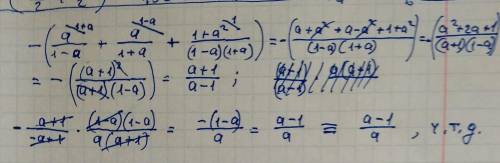 -(a^{\1+a}/(1-a) + a^{\1-a}/(1+a) + (1+a²)^{\1}/((1-a)(1+a))) = -((a+a²+a-a²+1+a²)/((1-a)(1+a))) = -((a²+2a+1)/((a+1)(1-a)))
= -((a+1)²/((a+1)(1-a))) = (a+1)/(a-1) ;
-(a+1)/(-a+1) · ((1-a)(1-a))/(a(a+1)) = -(1-a)/a = (a-1)/a ≡ (a-1)/a , ч.т.д.